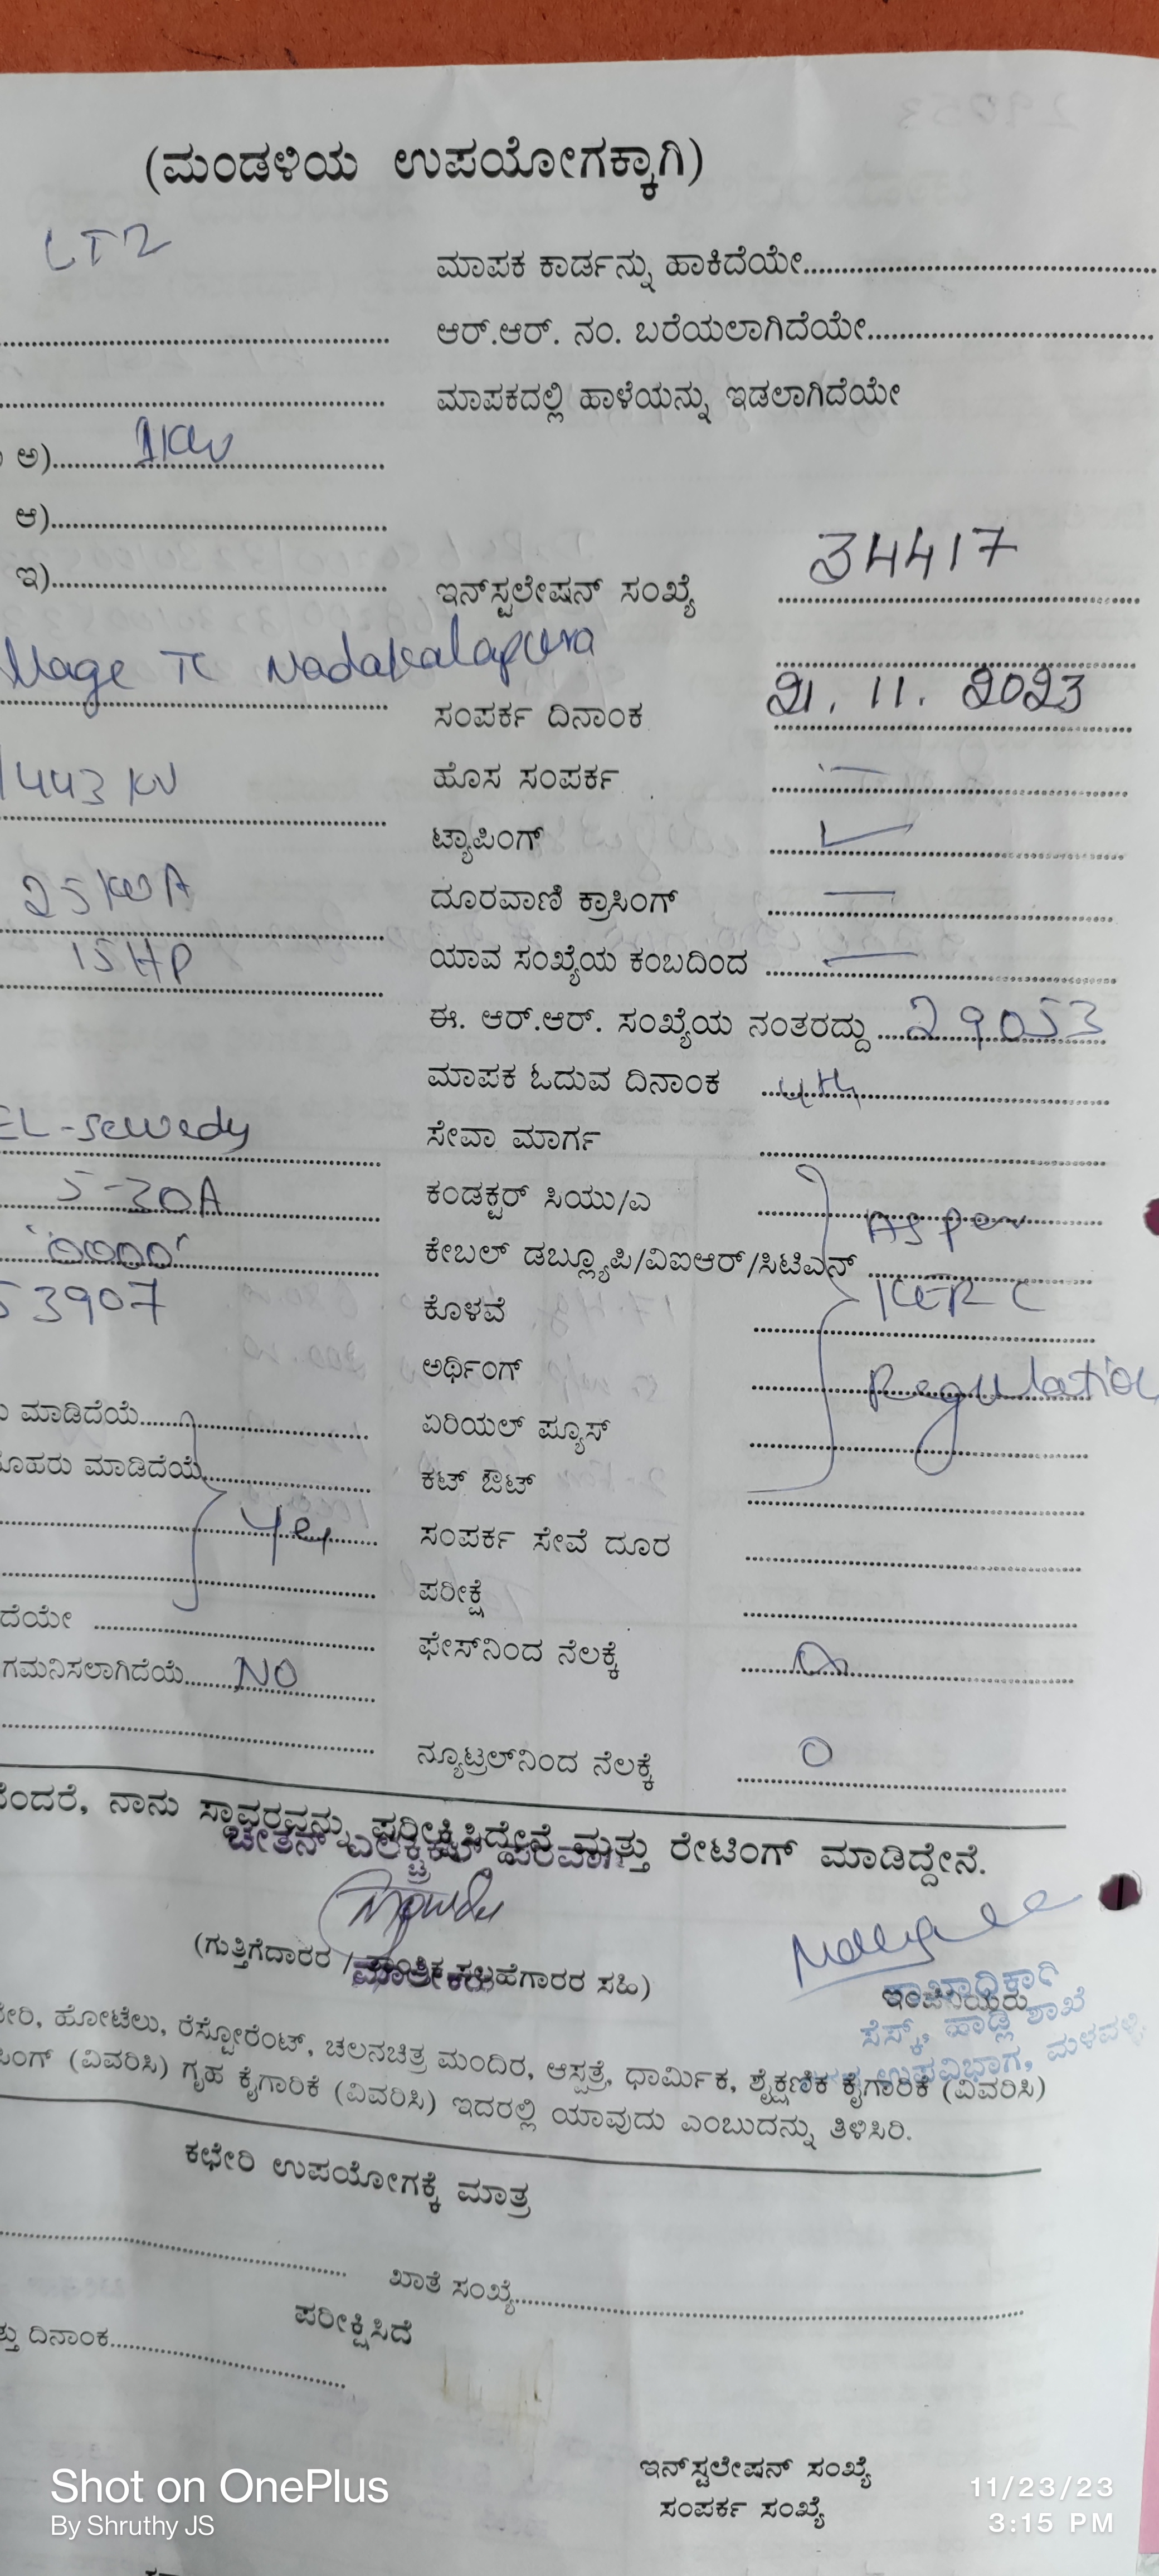 (ಮಂಡಳಿಯ ಉಪಯೋಗಕ್ಕಾಗಿ)
LT2
ಮಾಪಕ ಕಾರ್ಡನ್ನು ಹಾಕಿದೆಯೇ
ಆರ್.ಆರ್. ನಂ. ಬರೆಯಲಾಗಿದೆಯೇ
ಮಾಪಕದಲ್ಲಿ ಹಾಳೆಯನ್ನು ಇಡಲಾಗಿದೆಯೇ
ಅ) 1KW
ಆ)
ಇ)
ಇನ್‌ಸ್ಟಲೇಷನ್ ಸಂಖ್ಯೆ 34417
llage TC Nadakalapura
ಸಂಪರ್ಕ ದಿನಾಂಕ 21. 11. 2023
ಹೊಸ ಸಂಪರ್ಕ —
ಟ್ಯಾಪಿಂಗ್ ✓
25 KVA ದೂರವಾಣಿ ಕ್ರಾಸಿಂಗ್ —
15HP ಯಾವ ಸಂಖ್ಯೆಯ ಕಂಬದಿಂದ —
ಈ. ಆರ್.ಆರ್. ಸಂಖ್ಯೆಯ ನಂತರದ್ದು 29053
ಮಾಪಕ ಓದುವ ದಿನಾಂಕ 4th
EL-sewedy ಸೇವಾ ಮಾರ್ಗ
5-30A ಕಂಡಕ್ಟರ್ ಸಿಯು/ಎ As per
'0000' ಕೇಬಲ್ ಡಬ್ಲ್ಯೂಪಿ/ವಿಐಆರ್/ಸಿಟಿಎಸ್
53907 ಕೊಳವೆ KERC
ಅರ್ಥಿಂಗ್ Regulation
ಮಾಡಿದೆಯೆ ಏರಿಯಲ್ ಫ್ಯೂಸ್
ಮೊಹರು ಮಾಡಿದೆಯೆ ಕಟ್ ಔಟ್
Yes ಸಂಪರ್ಕ ಸೇವೆ ದೂರ
ಪರೀಕ್ಷೆ
ದೆಯೇ ಫೇಸ್‌ನಿಂದ ನೆಲಕ್ಕೆ
ಗಮನಿಸಲಾಗಿದೆಯೆ NO
ನ್ಯೂಟ್ರಲ್‌ನಿಂದ ನೆಲಕ್ಕೆ 0
ನೆಂದರೆ, ನಾನು ಸ್ಥಾವರವನ್ನು ಪರೀಕ್ಷಿಸಿದ್ದೇನೆ ಮತ್ತು ರೇಟಿಂಗ್ ಮಾಡಿದ್ದೇನೆ.
ಚೇತನ್ ಎಲೆಕ್ಟ್ರಿಕಲ್ ಪರವಾಗಿ
(ಗುತ್ತಿಗೆದಾರರ / ತಾಂತ್ರಿಕ ಸಲಹೆಗಾರರ ಸಹಿ)
ಮಾಲೀಕರು
ಇಂಜಿನಿಯರು
ಶಾಖಾಧಿಕಾರಿ
ಸೆಸ್ಕ್, ಹಾಡ್ಲಿ ಶಾಖೆ
ಉಪವಿಭಾಗ, ಮಳವಳ್ಳಿ.
ಚೇರಿ, ಹೋಟೆಲು, ರೆಸ್ಟೋರೆಂಟ್, ಚಲನಚಿತ್ರ ಮಂದಿರ, ಆಸ್ಪತ್ರೆ, ಧಾರ್ಮಿಕ, ಶೈಕ್ಷಣಿಕ ಕೈಗಾರಿಕೆ (ವಿವರಿಸಿ)
ಸಿಂಗ್ (ವಿವರಿಸಿ) ಗೃಹ ಕೈಗಾರಿಕೆ (ವಿವರಿಸಿ) ಇದರಲ್ಲಿ ಯಾವುದು ಎಂಬುದನ್ನು ತಿಳಿಸಿರಿ.
ಕಛೇರಿ ಉಪಯೋಗಕ್ಕೆ ಮಾತ್ರ
ಖಾತೆ ಸಂಖ್ಯೆ
ಪರೀಕ್ಷಿಸಿದೆ
ತ್ತು ದಿನಾಂಕ
ಇನ್‌ಸ್ಟಲೇಷನ್ ಸಂಖ್ಯೆ
ಸಂಪರ್ಕ ಸಂಖ್ಯೆ
Shot on OnePlus
By Shruthy JS
11/23/23
3:15 PM